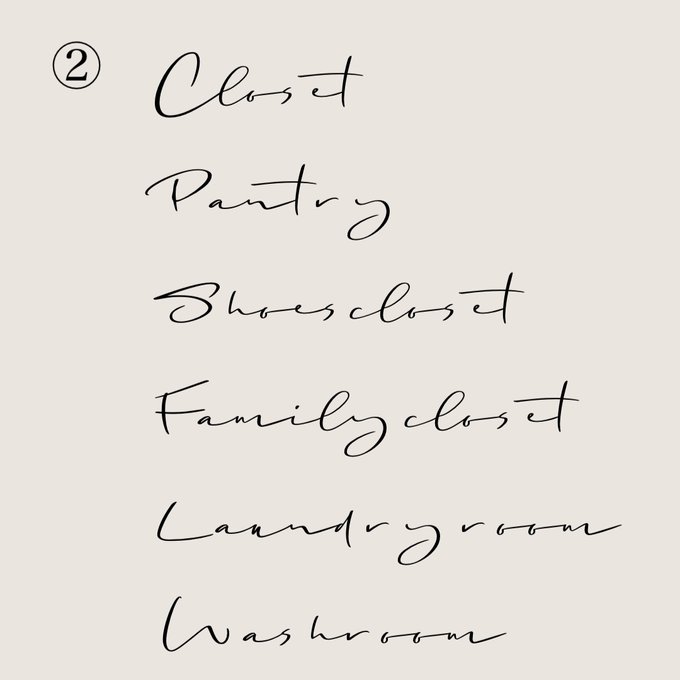 ② Closet
Pantry
Shoes closet
Family closet
Laundry room
Washroom